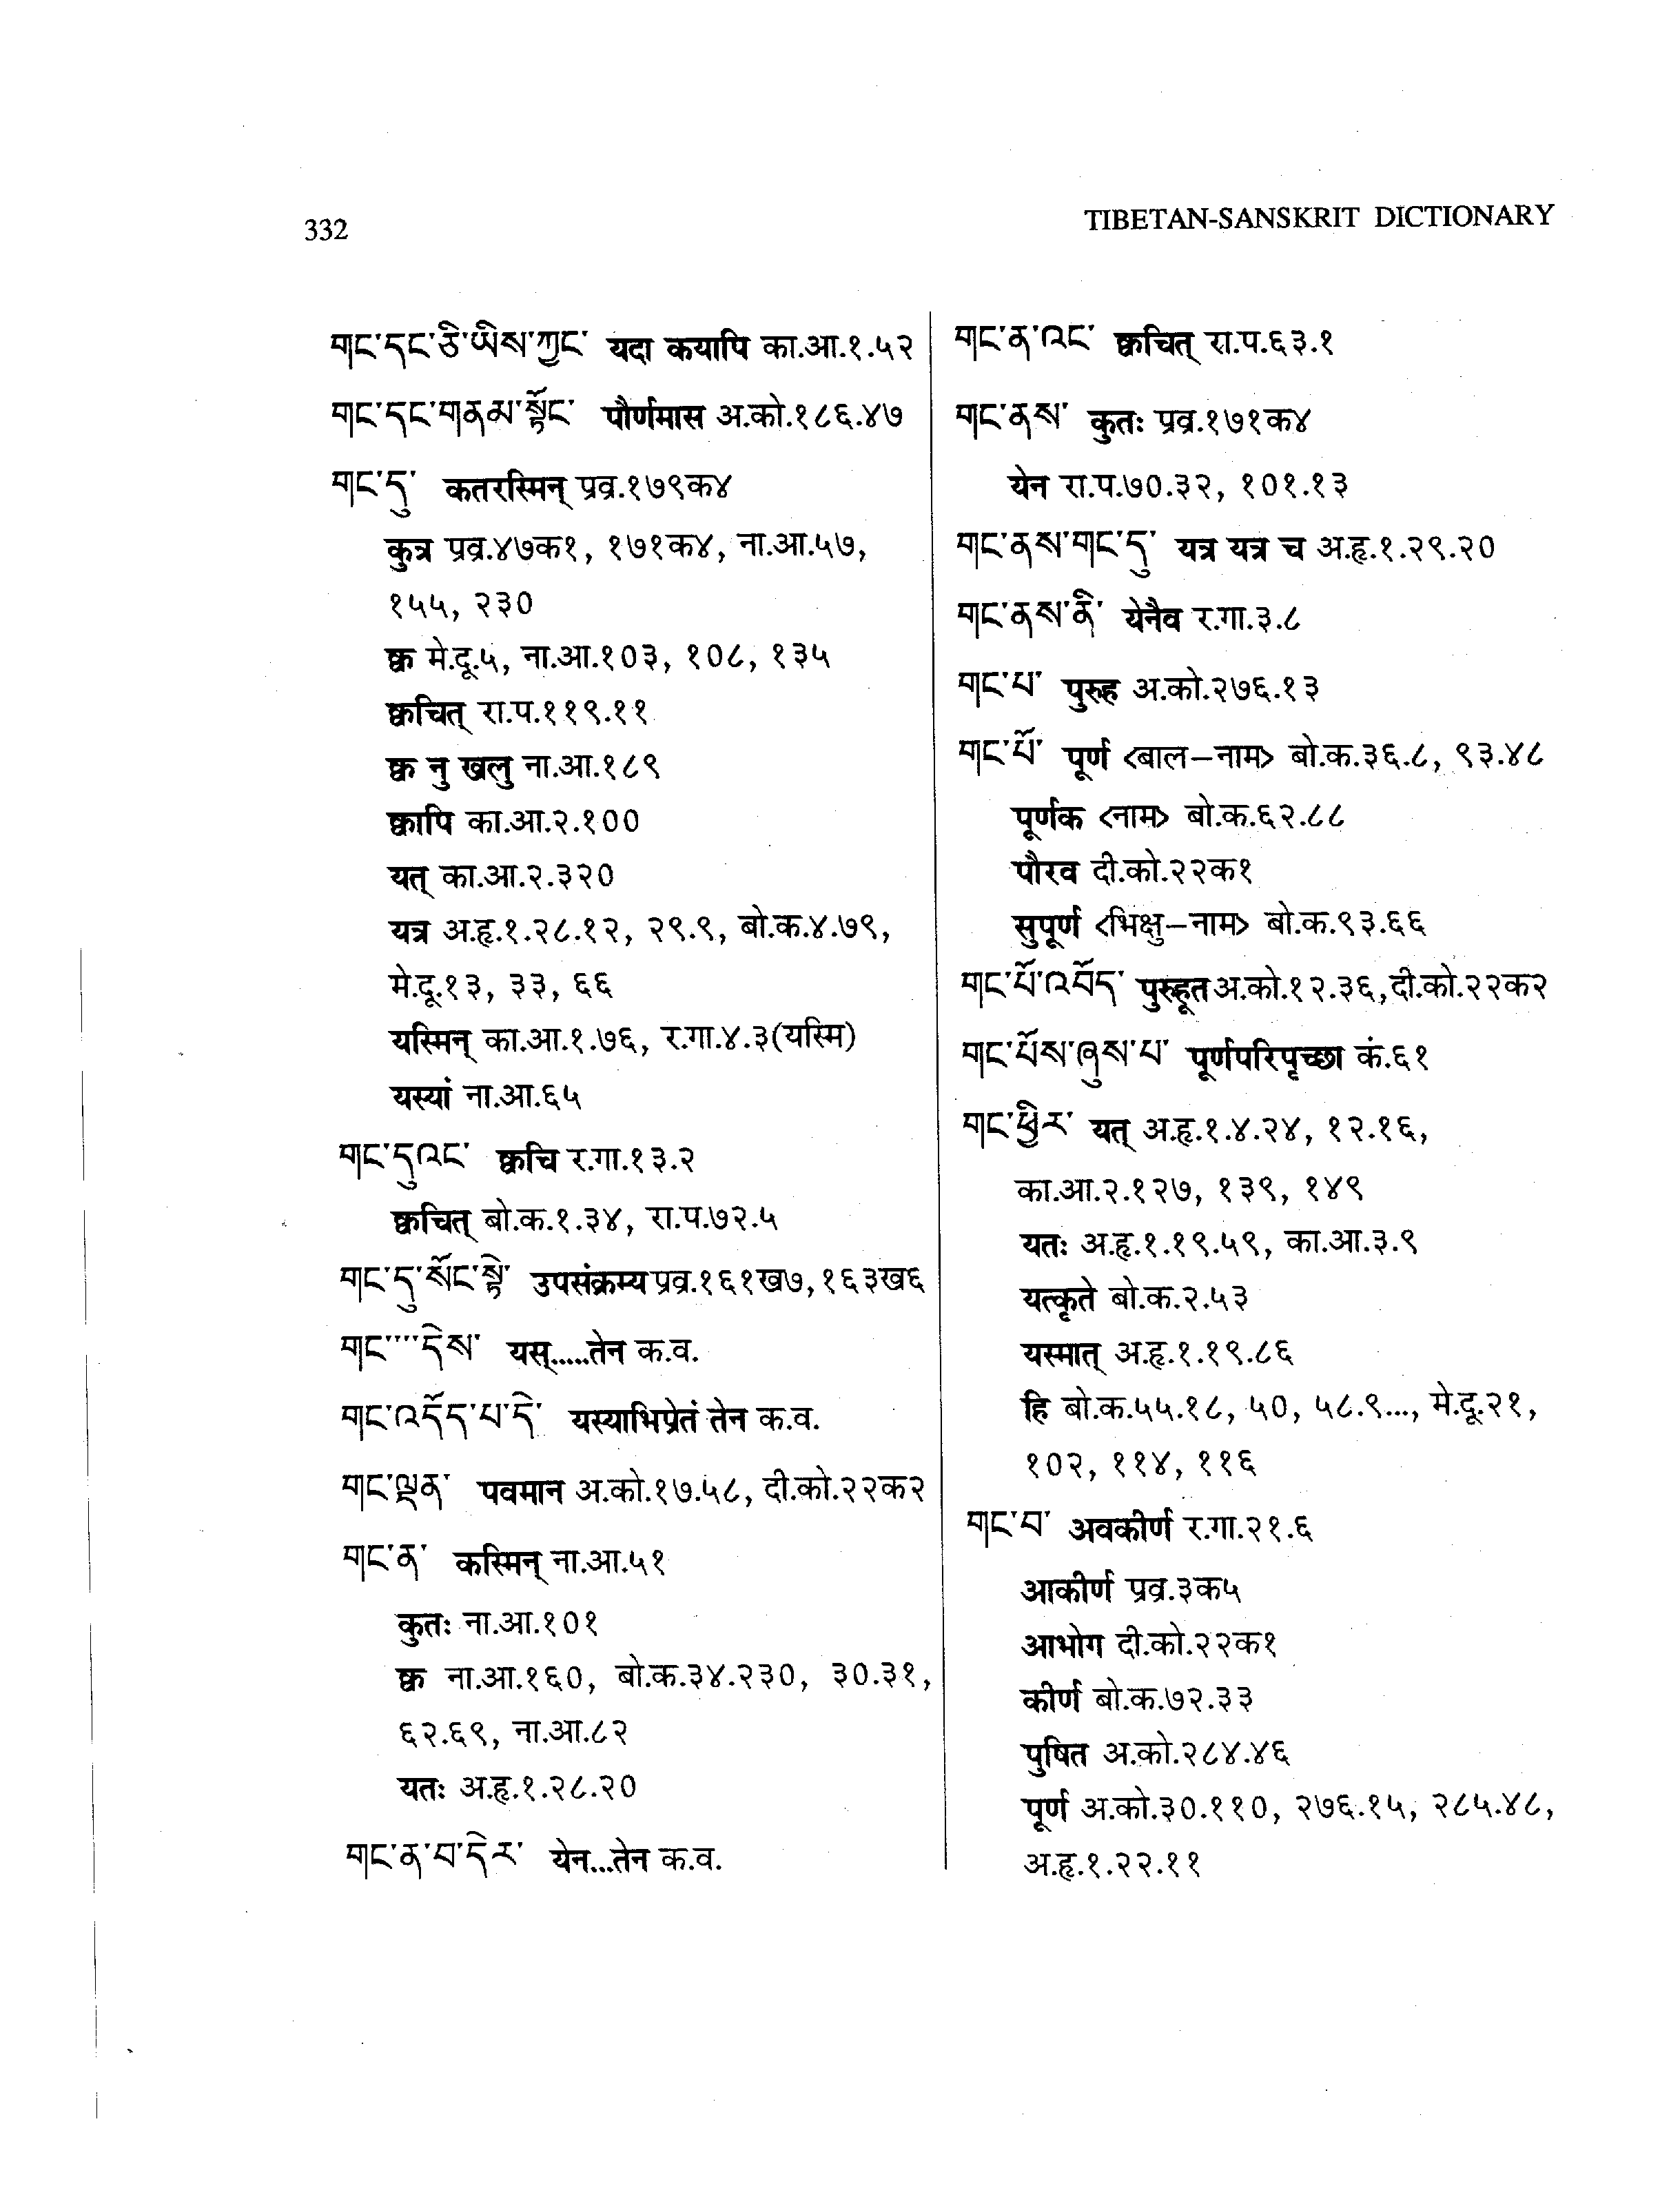 332
TIBETAN-SANSKRIT DICTIONARY
གང་དང་ཅི་ཡིས་ཀྱང་ यदा कयापि का.आ.१.५२
གང་དང་གནམ་སྟོང་ पौर्णमास अ.को.१८६.४७
གང་དུ་ कतरस्मिन् प्रव्र.१७९क४
कुत्र प्रव्र.४७क१, १७१क४, ना.आ.५७,
१५५, २३०
क्व मे.दू.५, ना.आ.१०३, १०८, १३५
क्वचित् रा.प.११९.११
क्व नु खलु ना.आ.१८९
क्वापि का.आ.२.१००
यत् का.आ.२.३२०
यत्र अ.हृ.१.२८.१२, २९.९, बो.क.४.७९,
मे.दू.१३, ३३, ६६
यस्मिन् का.आ.१.७६, र.गा.४.३(यस्मि)
यस्यां ना.आ.६५
གང་དུའང་ क्वचि र.गा.१३.२
क्वचित् बो.क.१.३४, रा.प.७२.५
གང་དུ་སོང་སྟེ་ उपसंक्रम्य प्रव्र.१६१ख७, १६३ख६
གང་་་་དེས་ यस्......तेन क.व.
གང་འདོད་པ་དེ་ यस्याभिप्रेतं तेन क.व.
གང་ལྡན་ पवमान अ.को.१७.५८, दी.को.२२क२
གང་ན་ कस्मिन् ना.आ.५१
कुतः ना.आ.१०१
क्व ना.आ.१६०, बो.क.३४.२३०, ३०.३१,
६२.६९, ना.आ.८२
यतः अ.हृ.१.२८.२०
གང་ན་བ་དེར་ येन...तेन क.व.
གང་ན་འང་ क्वचित् रा.प.६३.१
གང་ནས་ कुतः प्रव्र.१७१क४
येन रा.प.७०.३२, १०१.१३
གང་ནས་གང་དུ་ यत्र यत्र च अ.हृ.१.२९.२०
གང་ནས་ནི་ येनैव र.गा.३.८
གང་པ་ पुरुह अ.को.२७६.१३
གང་པོ་ पूर्ण <बाल–नाम> बो.क.३६.८, ९३.४८
पूर्णक <नाम> बो.क.६२.८८
पौरव दी.को.२२क१
सुपूर्ण <भिक्षु–नाम> बो.क.९३.६६
གང་པོ་འབོད་ पुरुहूत अ.को.१२.३६, दी.को.२२क२
གང་པོས་ཞུས་པ་ पूर्णपरिपृच्छा कं.६१
གང་ཕྱིར་ यत् अ.हृ.१.४.२४, १२.१६,
का.आ.२.१२७, १३९, १४९
यतः अ.हृ.१.१९.५९, का.आ.३.९
यत्कृते बो.क.२.५३
यस्मात् अ.हृ.१.१९.८६
हि बो.क.५५.१८, ५०, ५८.९..., मे.दू.२१,
१०२, ११४, ११६
གང་བ་ अवकीर्ण र.गा.२१.६
आकीर्ण प्रव्र.३क५
आभोग दी.को.२२क१
कीर्ण बो.क.७२.३३
पुषित अ.को.२८४.४६
पूर्ण अ.को.३०.११०, २७६.१५, २८५.४८,
अ.हृ.१.२२.११